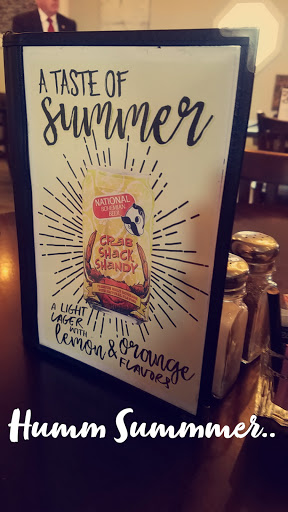 A TASTE OF
Summer
NATIONAL
BOHEMIAN
BEER
CRAB
SHACK
SHANDY
A LIGHT
LAGER
WITH
lemon & orange
FLAVORS
Humm Summmer..